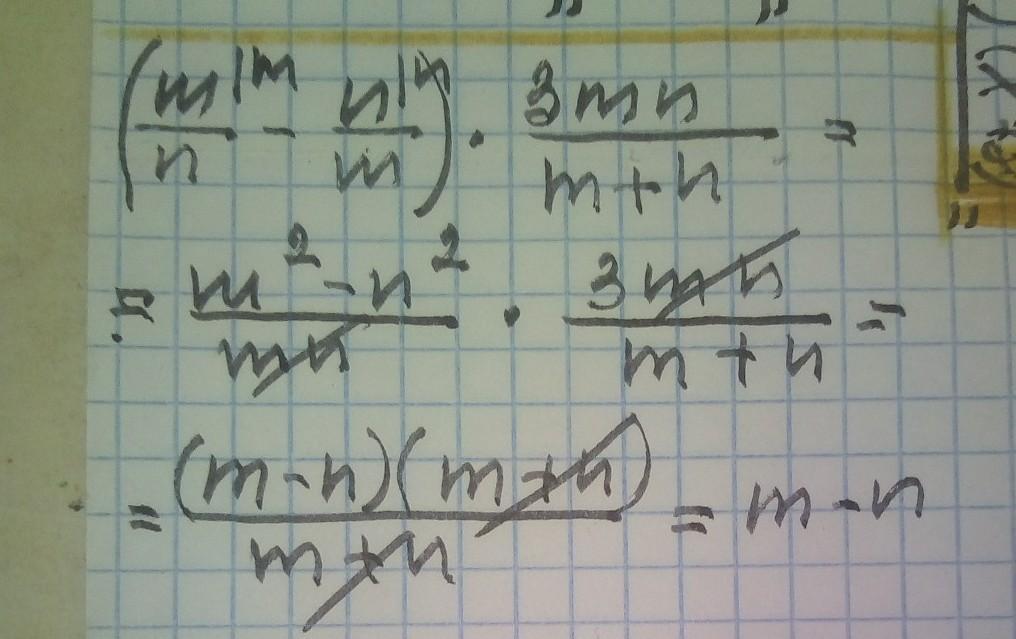 (m/n |m - n/m |n) · 3mn/(m+n) =
= (m² - n²)/(mn) · 3mn/(m+n) =
= (m-n)(m+n)/(m+n) = m-n